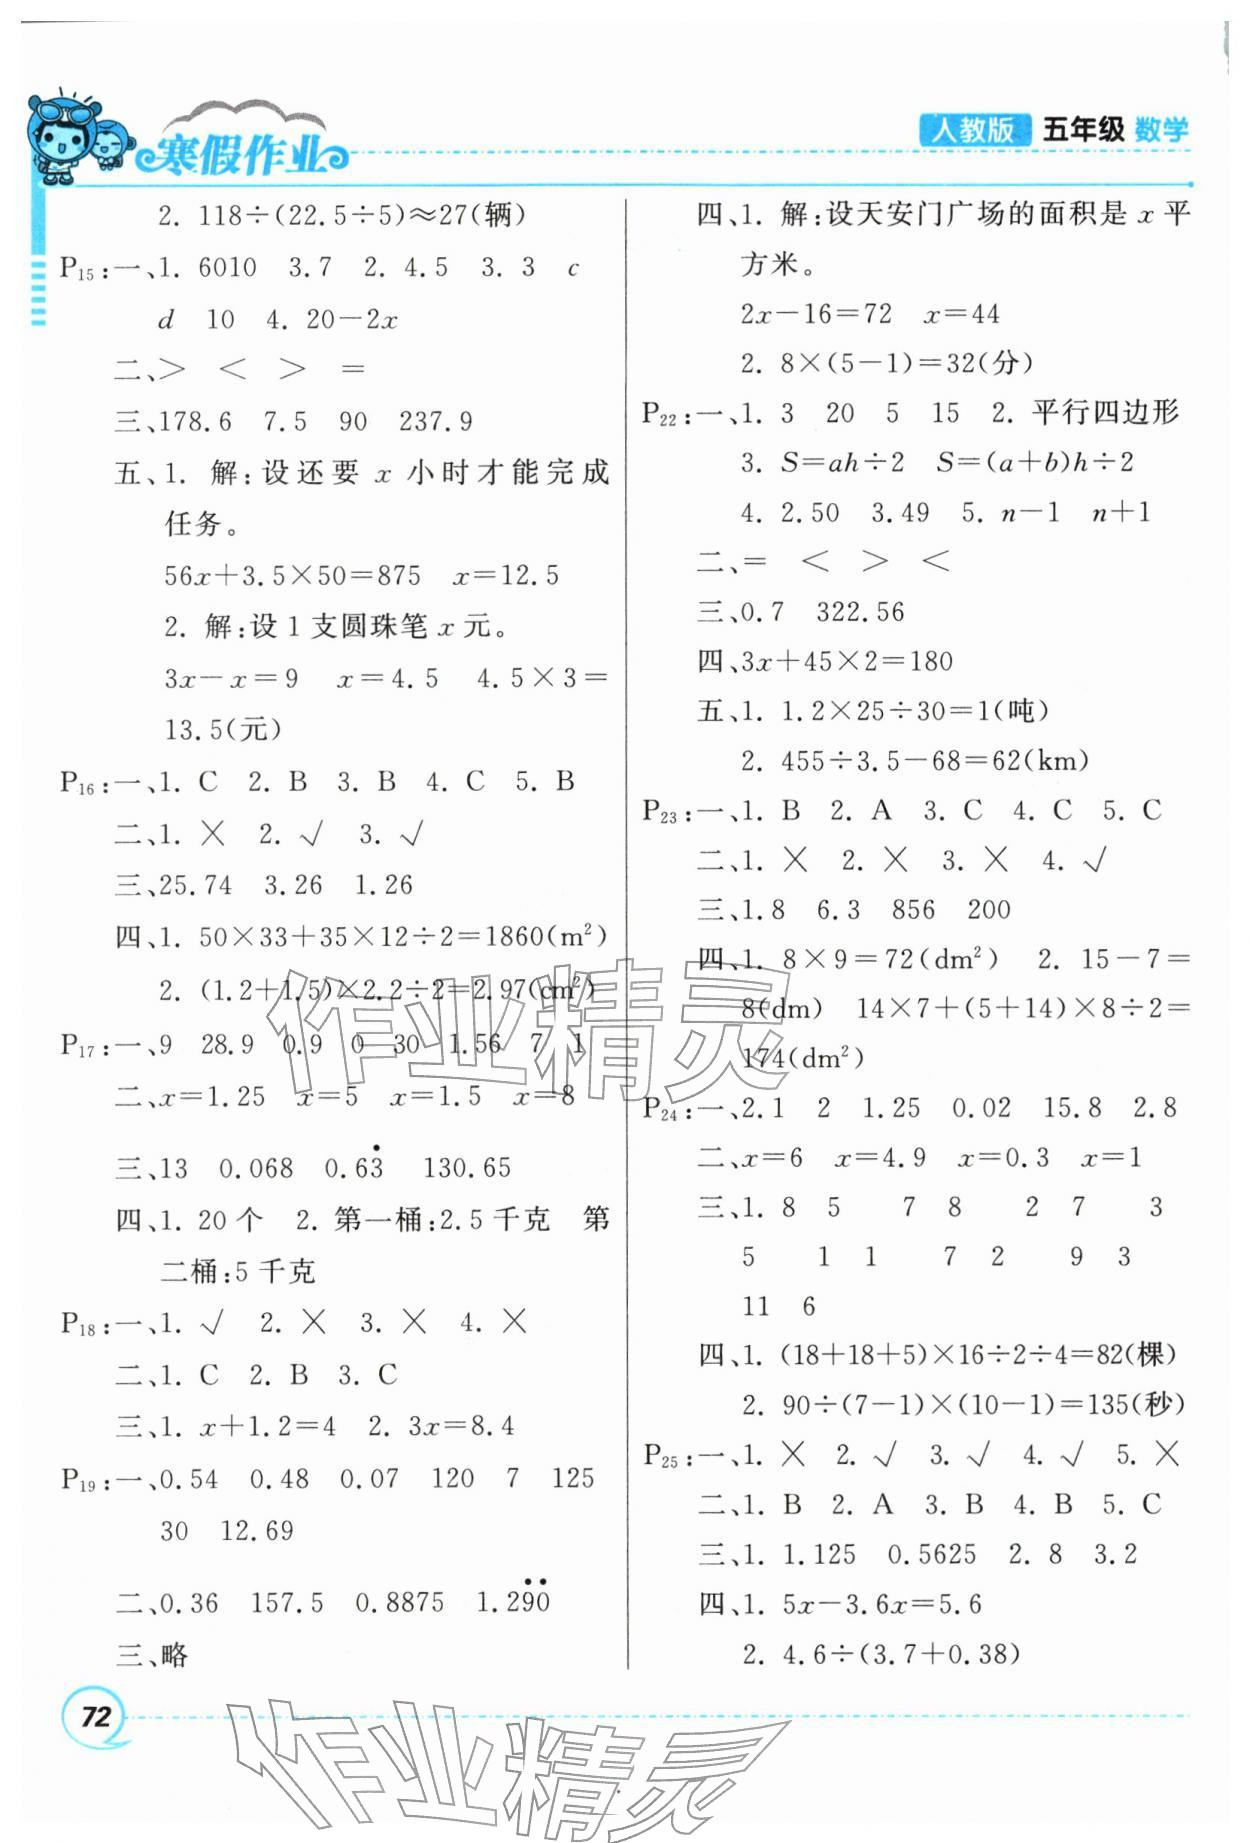 寒假作业
人教版 五年级 数学
2. 118÷(22.5÷5)≈27(辆)
P15:一、1. 6010 3.7 2. 4.5 3. 3 c
d 10 4. 20−2x
二、> < > =
三、178.6 7.5 90 237.9
五、1. 解:设还要 x 小时才能完成
任务。
56x+3.5×50=875 x=12.5
2. 解:设1支圆珠笔 x 元。
3x−x=9 x=4.5 4.5×3=
13.5(元)
P16:一、1. C 2. B 3. B 4. C 5. B
二、1. × 2. √ 3. √
三、25.74 3.26 1.26
四、1. 50×33+35×12÷2=1860(m²)
2. (1.2+1.5)×2.2÷2=2.97(cm²)
P17:一、9 28.9 0.9 0 30 1.56 7 1
二、x=1.25 x=5 x=1.5 x=8
三、13 0.068 0.63̇ 130.65
四、1. 20个 2. 第一桶:2.5千克 第
二桶:5千克
P18:一、1. √ 2. × 3. × 4. ×
二、1. C 2. B 3. C
三、1. x+1.2=4 2. 3x=8.4
P19:一、0.54 0.48 0.07 120 7 125
30 12.69
二、0.36 157.5 0.8875 1.29̇0̇
三、略
四、1. 解:设天安门广场的面积是 x 平
方米。
2x−16=72 x=44
2. 8×(5−1)=32(分)
P22:一、1. 3 20 5 15 2. 平行四边形
3. S=ah÷2 S=(a+b)h÷2
4. 2.50 3.49 5. n−1 n+1
二、= < > <
三、0.7 322.56
四、3x+45×2=180
五、1. 1.2×25÷30=1(吨)
2. 455÷3.5−68=62(km)
P23:一、1. B 2. A 3. C 4. C 5. C
二、1. × 2. × 3. × 4. √
三、1.8 6.3 856 200
四、1. 8×9=72(dm²) 2. 15−7=
8(dm) 14×7+(5+14)×8÷2=
174(dm²)
P24:一、2.1 2 1.25 0.02 15.8 2.8
二、x=6 x=4.9 x=0.3 x=1
三、1. 8 5 7 8 2 7 3
5 1 1 7 2 9 3
11 6
四、1. (18+18+5)×16÷2÷4=82(棵)
2. 90÷(7−1)×(10−1)=135(秒)
P25:一、1. × 2. √ 3. √ 4. √ 5. ×
二、1. B 2. A 3. B 4. B 5. C
三、1. 1.125 0.5625 2. 8 3.2
四、1. 5x−3.6x=5.6
2. 4.6÷(3.7+0.38)
72
作业精灵
作业精灵